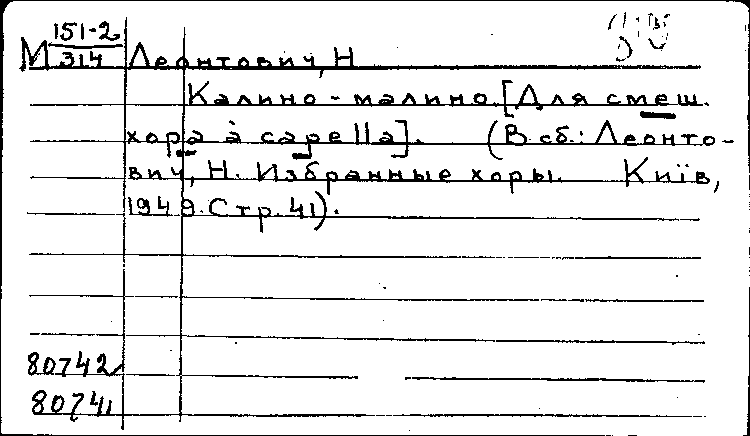 М 151-2/314 Леонтович, Н
Калино-малино. [Для смеш.
хора à capella]. (В сб.: Леонто-
вич, Н. Избранные хоры. Київ,
1949. Стр. 41).
80742
80741